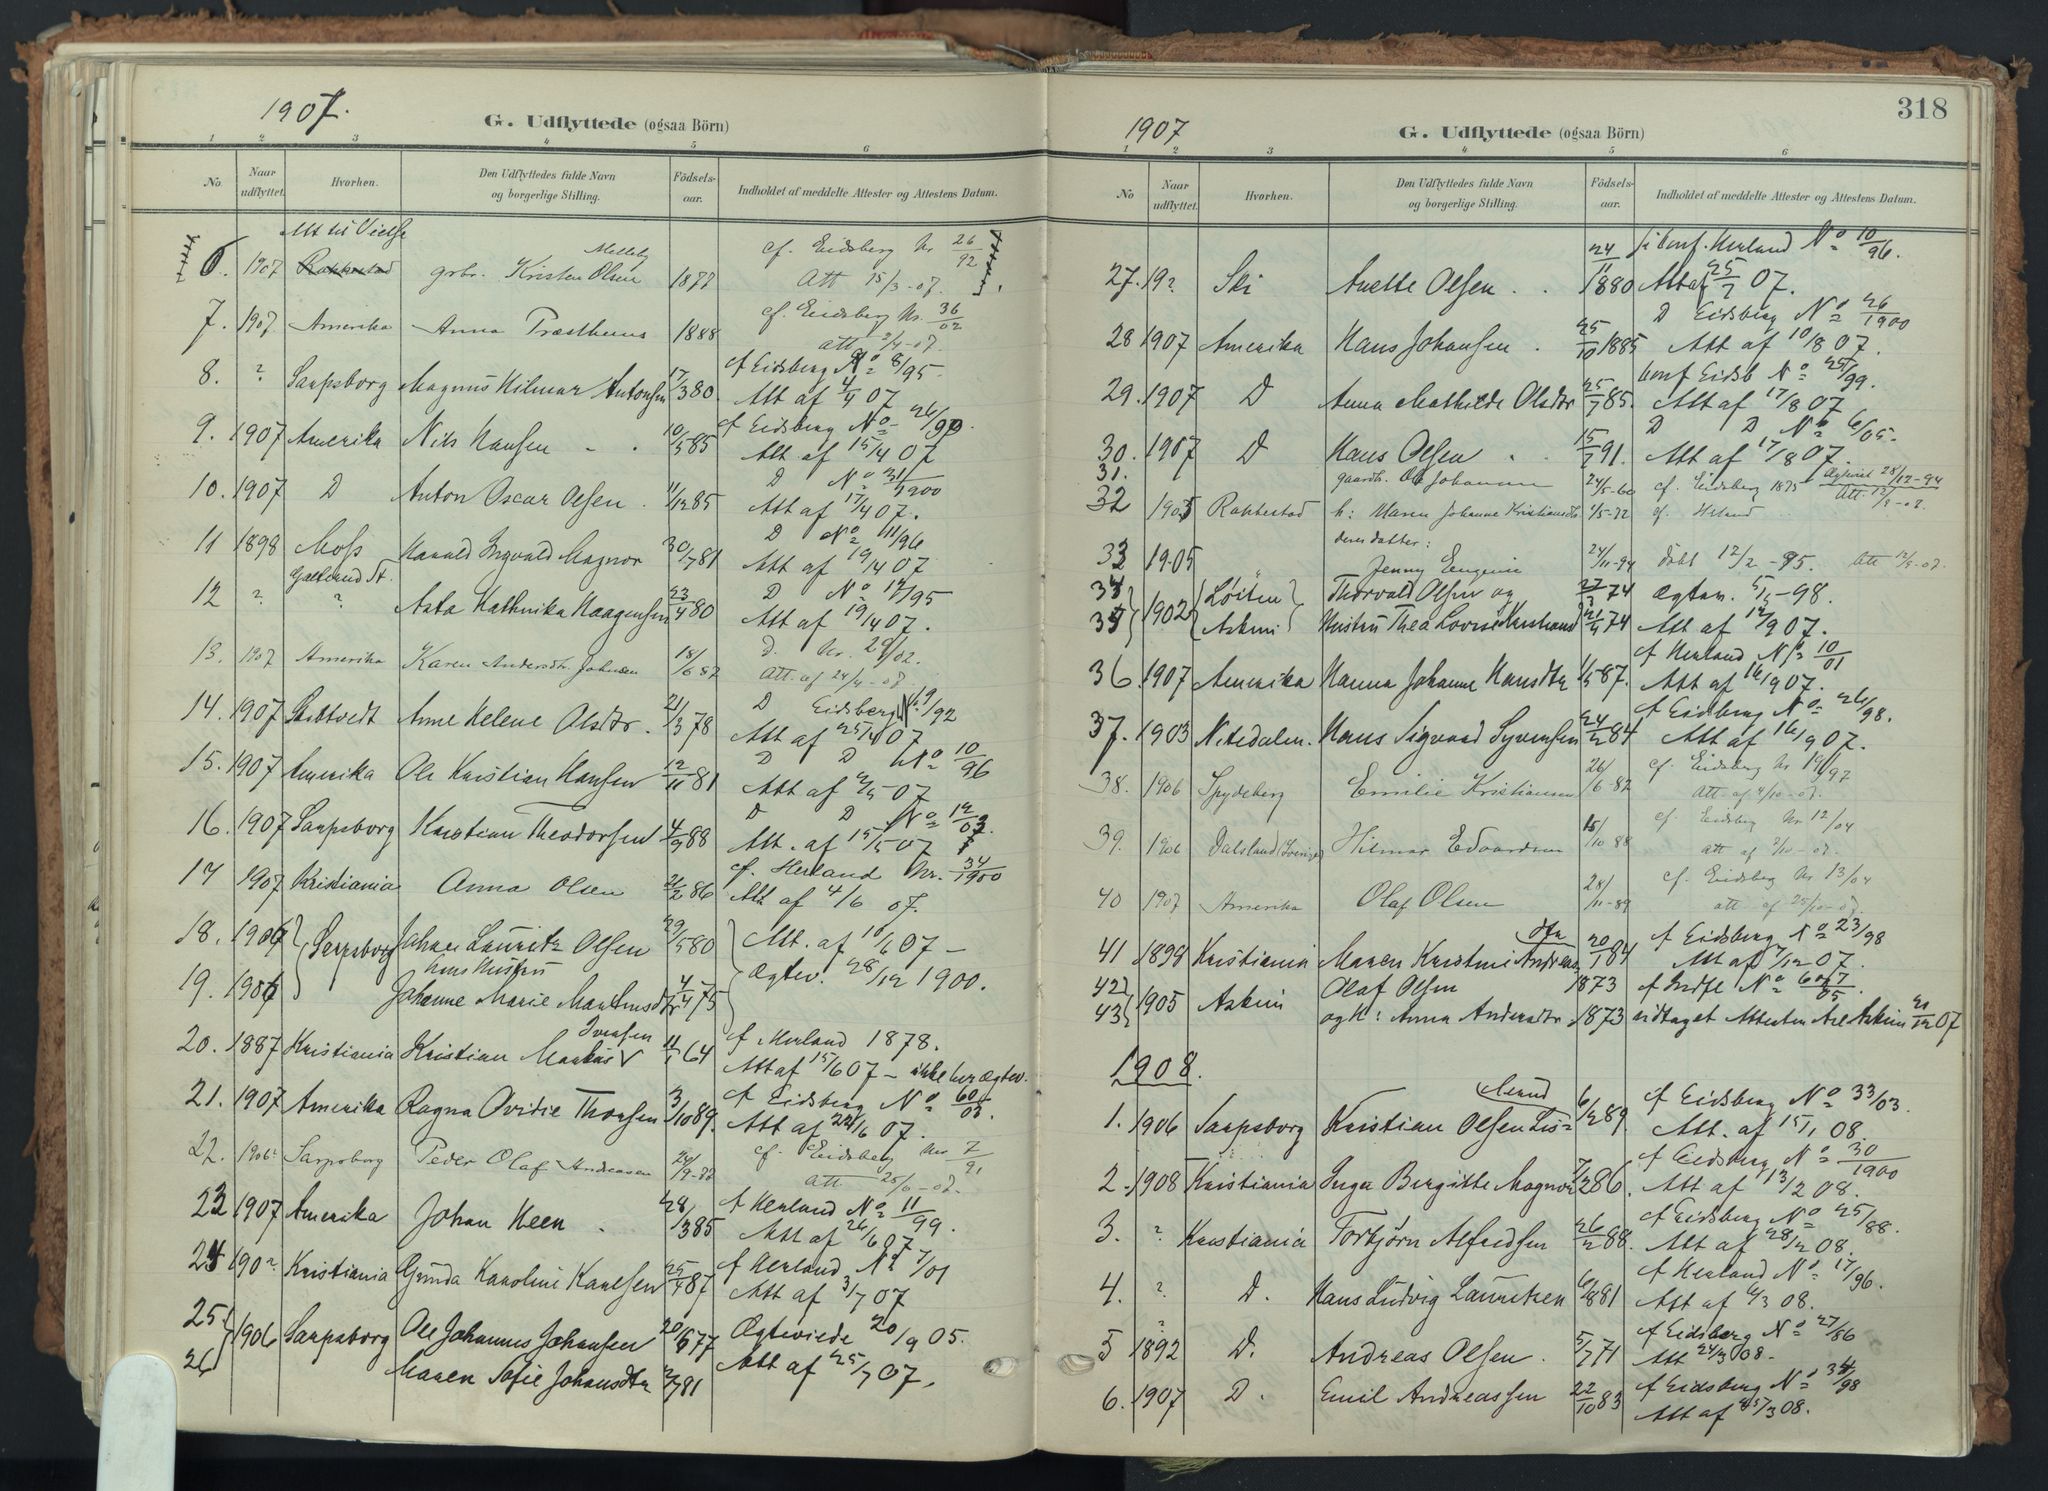 1907.
G. Udflyttede (ogsaa Börn)
1 2 3 4 5 6
No. Naar udflyttet. Hvorhen. Den Udflyttedes fulde Navn og borgerlige Stilling. Födsels-aar. Indholdet af meddelte Attester og Attestens Datum.
Att til Vielse
6. 1907 Rakkestad grbr. Kristen Olsen Melleby 1877 cf. Eidsberg Nr. 26/92
Att 15/3-07.
7. 1907 Amerika Anna 1888 cf. Eidsberg Nr. 36/02
att 2/4-07.
8. ? Sarpsborg Magnus Hilmar Antonsen 17/3 80 cf Eidsberg No 8/95.
Att af 4/4 07
9. 1907 Amerika Nils Hansen 10/5 85 cf Eidsberg No 26/99.
Att af 15/4 07
10. 1907 D Anton Oscar Olsen 11/12 85 D No 31/1900
Att af 17/4 07.
11 1898 Moss Harald Ingvald Magnor 30/7 81 D No 11/96
Att af 19/4 07
12 ? ? Asta Kathrika Haagensen 23/4 80 D No 14/95
Att af 19/4 07.
13. 1907 Amerika Karen Andersdtr. Johnsen 18/6 87 D. Nr. 28/02.
Att. af 24/4-07.
14. 1907 Anne Helene Olsdtr. 21/3 78 D Eidsberg No 9/92
Att af 25/4 07
15. 1907 Amerika Ole Kristian Hansen 12/11 81 D D No 10/96
Att af 2/5 07
16. 1907 Sarpsborg Kristian Theodorsen 4/9 88 D D No 12/03.
Att. af 15/5 07
17 1907 Kristiania Anna Olsen 21/2 86 cf. Herland Nr. 34/1900
Att af 4/6 07.
18. 1906 Sarpsborg Johan Lauritz Olsen 29/5 80 Att. af 10/6 07 –
hans Hustru
19. 1906 Johanne Marie Marthinusdtr 4/4 75 Ægtev. 28/12 1900.
20. 1887 Kristiania Kristian Markus Iversen 11/1 64 cf Herland 1878.
Att af 15/6 07 – ikke her Ægtev.
21. 1907 Amerika Ragna Ovidie Thorsen 3/10 89. cf Eidsberg No 60/03.
Att af 22/6 07.
22. 1906 Sarpsborg Peder Olaf Andreasen cf. Eidsberg Nr 7/91
Att 25/6-07.
23 1907 Amerika Johan Heen 28/3 85 cf Herland No 11/99.
Att af 26/6 07
24 190? Kristiania Gunda Karoline Karlsen 25/4 87 cf Herland No 7/01
Att af 3/7 07
25 1906 Sarpsborg Ole Johannes Johansen 20/6 77 Ægteviede 20/9 05.
26 Maren Sofie Johansdtr 81 Att af 25/7 07.
318
1907
G. Udflyttede (ogsaa Börn)
1 2 3 4 5 6
No Naar udflyttet. Hvorhen. Den Udflyttedes fulde Navn og borgerlige Stilling. Födsels-aar. Indholdet af meddelte Attester og Attestens Datum.
27. 19? Ski Anette Olsen 24/11 1880 Herland No 10/96.
Att af 25/7 07.
28 1907 Amerika Hans Johansen 25/10 1885 D Eidsberg No 26/1900
Att af 10/8 07.
29. 1907 D Anna Mathilde Olsdtr 25/7 85. Conf Eidsb No 25/99.
Att af 17/8 07
30. 1907 D Hans Olsen 15/2 91. D D No 6/05.
Att af 17/8 07.
31. gaardbr. Ole Johansen 24/5-60 cf. Eidsberg 1875 Ægteviet 28/12-94
32 1905 Rakkestad h: Maren Johanne Kristiansdtr 4/5-72 cf. Herland Att. 12/9-07.
deres datter:
33 1905 Jenny Eugenie 24/11-94 döbt 12/2-95. Att 12/9-07.
34 1902 Löiten Thorvald Olsen og 27/3 74 Ægtev. 5/5-98.
35 Askim Hustru Thea Lovise 21/4 74 Att af 12/9 07.
36. 1907 Amerika Hanna Johanne Hansdtr 1/5 87. cf Herland No 10/01
Att af 16/9 07.
37. 1903 Nitedalen. Hans Sigvard Syvensen 24/2 84 cf Eidberg No 26/98.
Att af 16/9 07.
38. 1906 Spydeberg Emilie Kristiansen 26/6-82 cf. Eidsberg Nr 19/97
Att. af 4/10-07.
39. 1906 Dalsland (Sverige) Hilmar Edvardsen 15/10 88 cf. Eidsberg Nr 12/04
att af 7/10-07.
40 1907 Amerika Olaf Olsen 28/11-89 cf. Eidsberg Nr 13/04
att af 25/10-07.
41 1898 Kristiania Maren Kristine Andrea 20/1 84 cf Eidsberg No 23/98
Att af 7/12 07.
42 1905 Askim Olaf Olsen 1873 cf Indfl No 6 og 7/05.
43 og H: Anna Andersdtr 1873 udtaget Attester Askim 20/12 07
1908.
1. 1906 Sarpsborg Kristian Olsen Lis= 6/2 89. cf Eidsberg No 33/03.
Att. af 15/1 08.
2. 1908 Kristiania Inga Birgitte Magnor 7/2 86. cf Eidsberg No 30/1900
Att af 13/2 08.
3. ? Kristiania Torbjörn Alfredsen 26/2 88. cf Eidsberg No 25/88.
Att af 28/2 08.
4. ? D. Hans Ludvig Lauritzen 6/8 81 cf Herland No 17/96.
Att af 6/3 08.
5 1892 D. Andreas Olsen 5/7 71 cf Eidsberg No 27/86
Att 24/3 08.
6. 1907 D. Emil Andreassen 22/10 83 cf Eidsberg No 34/98
Att af 25/3 08.